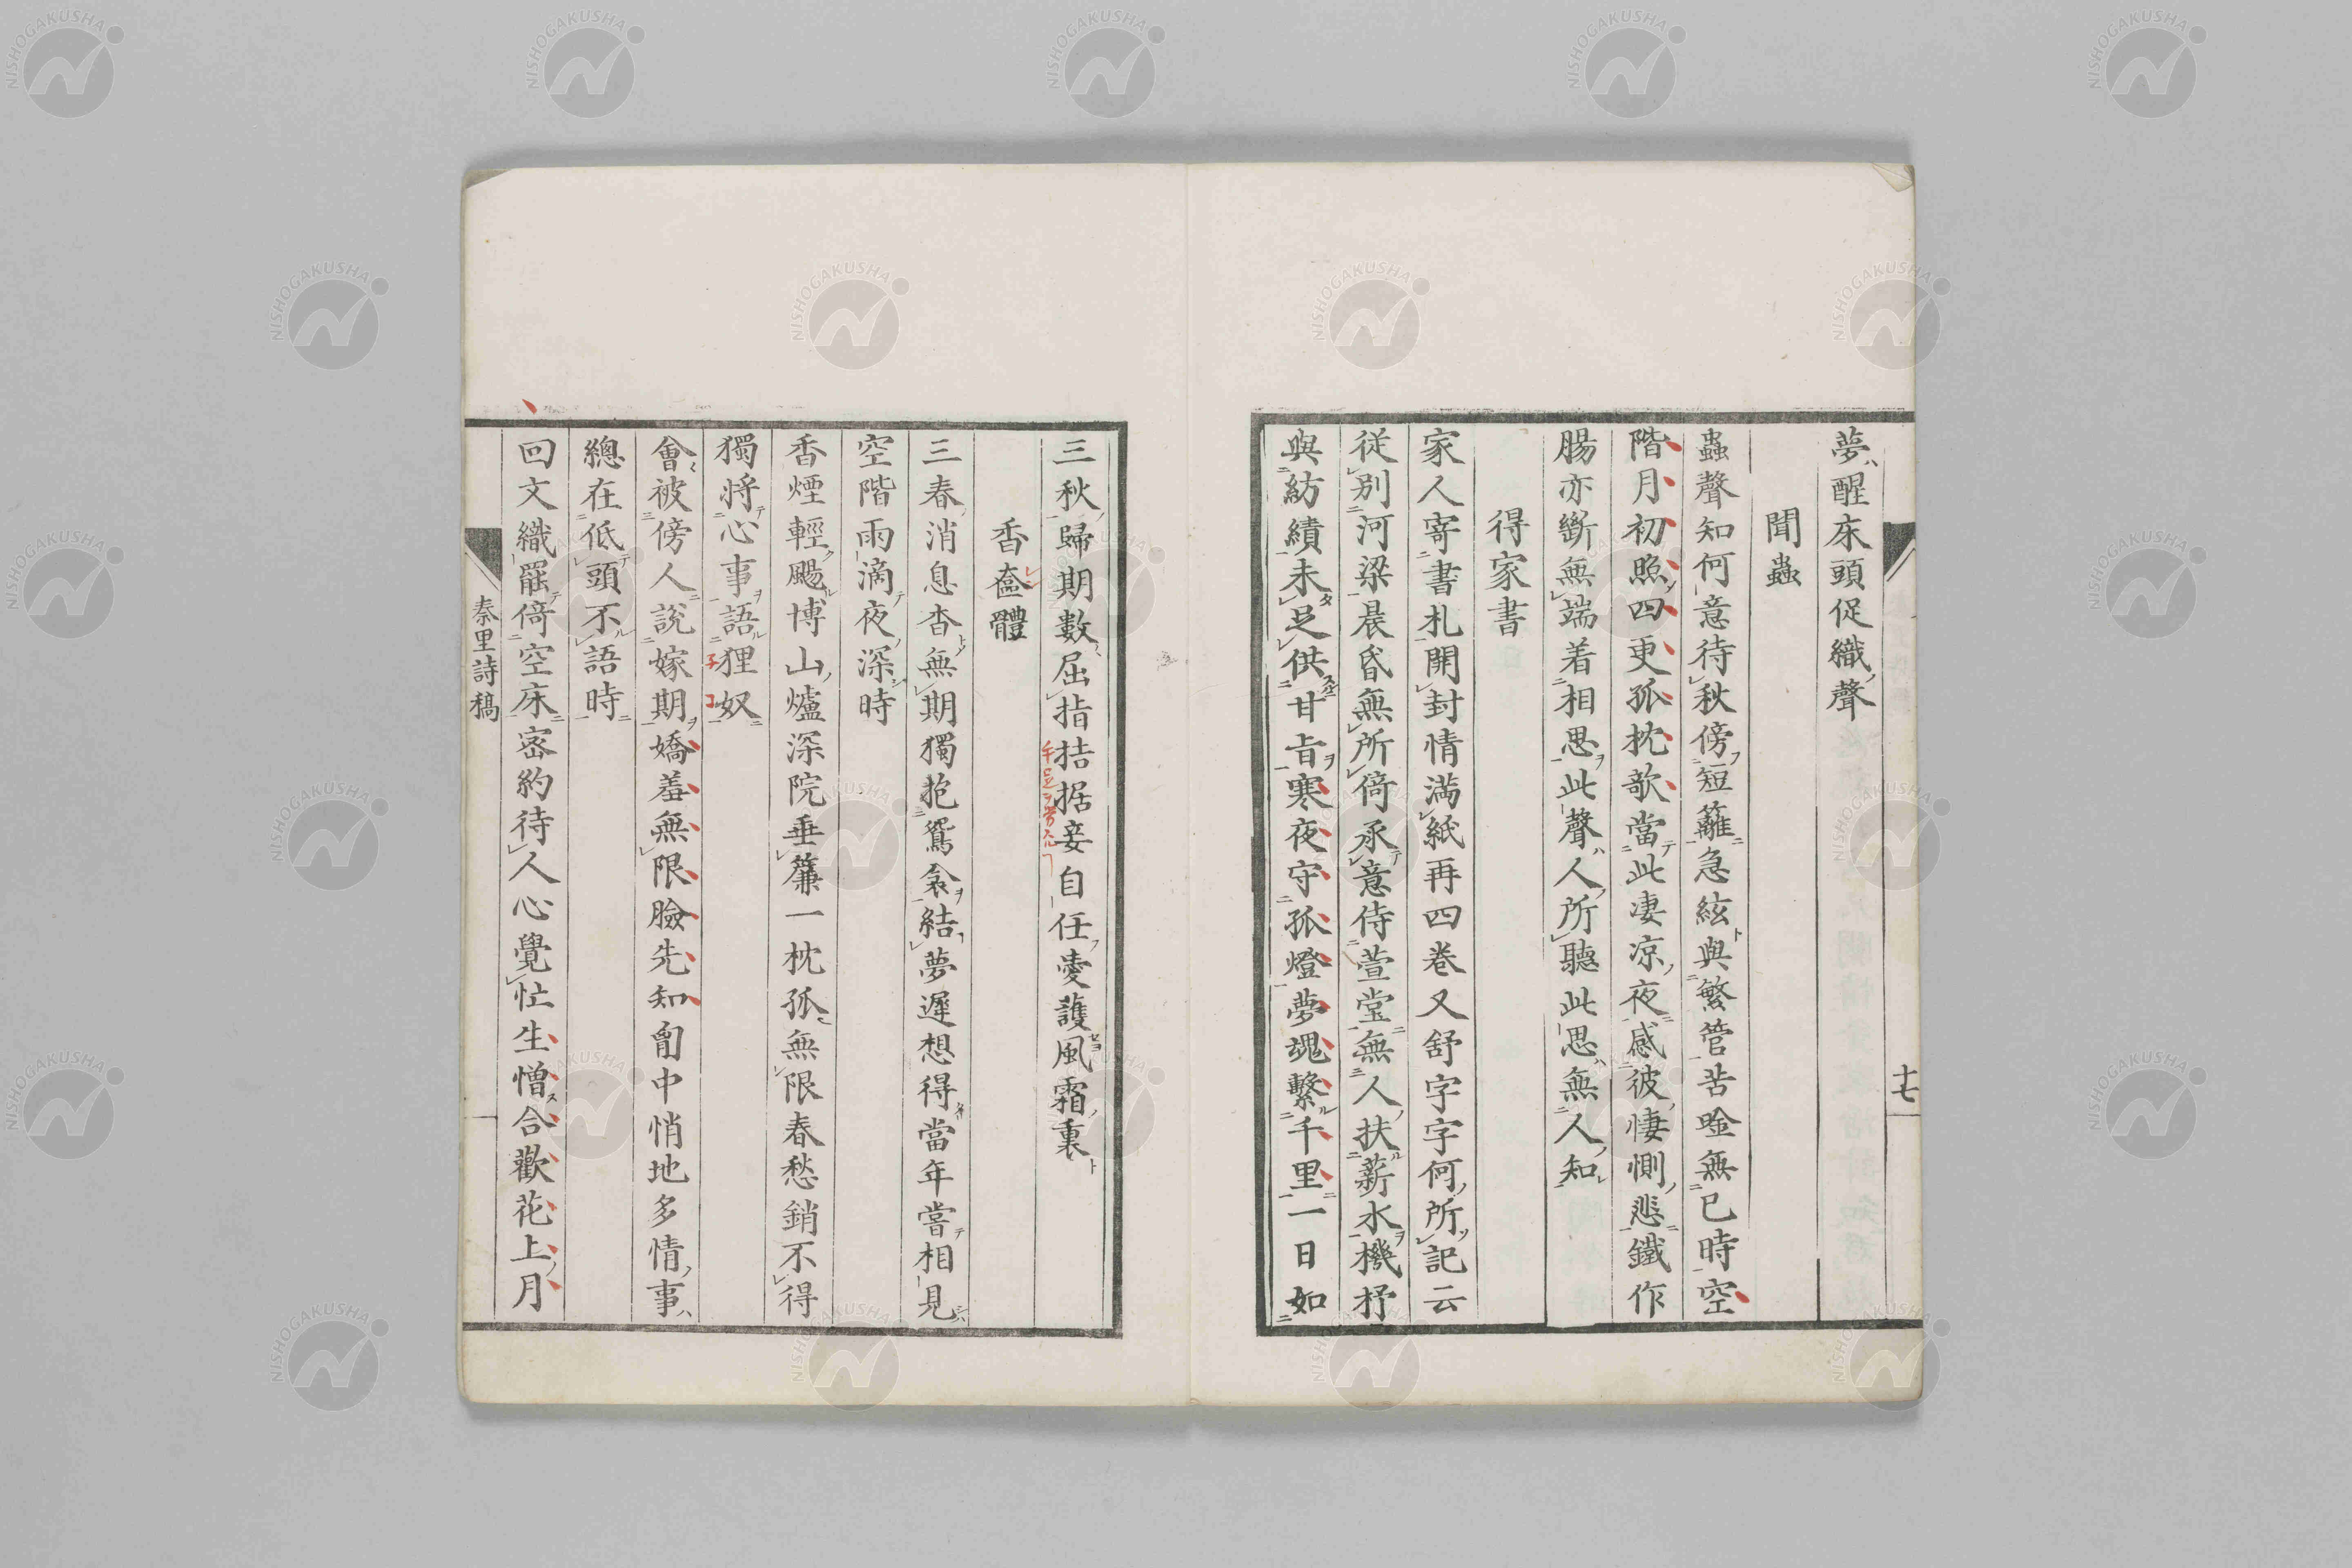 夢醒床頭促織聲
聞蟲
蟲聲知何意待秋傍短籬急絃與繁管苦唫無已時空
階月初照四更孤枕欹當此凄凉夜感彼悽惻悲鐵作
腸亦斷無端着相思此聲人所聽此思無人知
得家書
家人寄書札開封情滿紙再四卷又舒字字何所記云
從別河梁晨昏無所倚承意侍萱堂無人扶薪水機杼
與紡績未足供甘旨寒夜守孤燈夢魂繫千里一日如
十七
三秋歸期數屈指拮据妾自任愛護風霜裏
香奩體
三春消息杳無期獨抱鴛衾結夢遲想得當年嘗相見
空階雨滴夜深時
香煙輕颺博山爐深院垂簾一枕孤無限春愁銷不得
獨將心事語狸奴
會被傍人說嫁期嬌羞無限臉先知胷中悄地多情事
總在低頭不語時
回文織罷倚空床密約待人心覺忙生憎合歡花上月
秦里詩稿
NISHOGAKUSHA